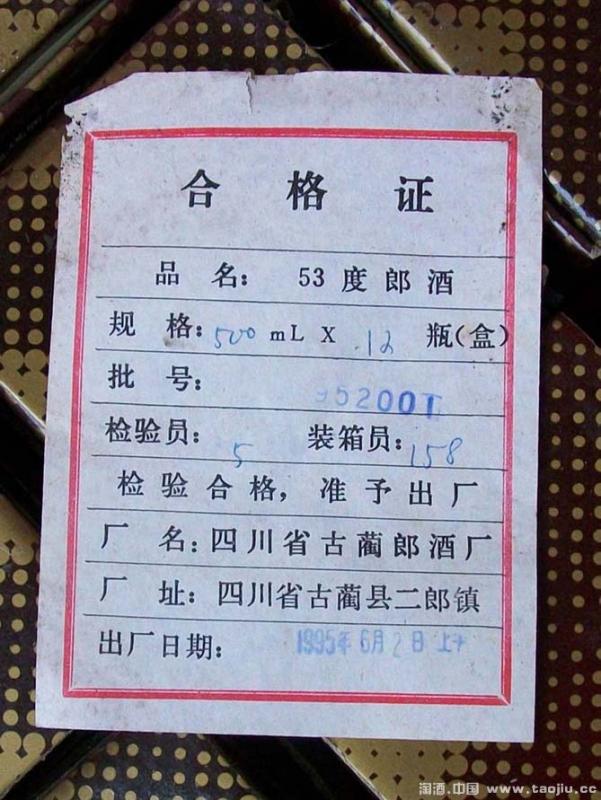 合格证
品名：53度郎酒
规格：500mL X 12瓶(盒)
批号：95200T
检验员：5 装箱员：158
检验合格，准予出厂
厂名：四川省古蔺郎酒厂
厂址：四川省古蔺县二郎镇
出厂日期：1995年6月2日上
淘酒.中国 www.taojiu.cc